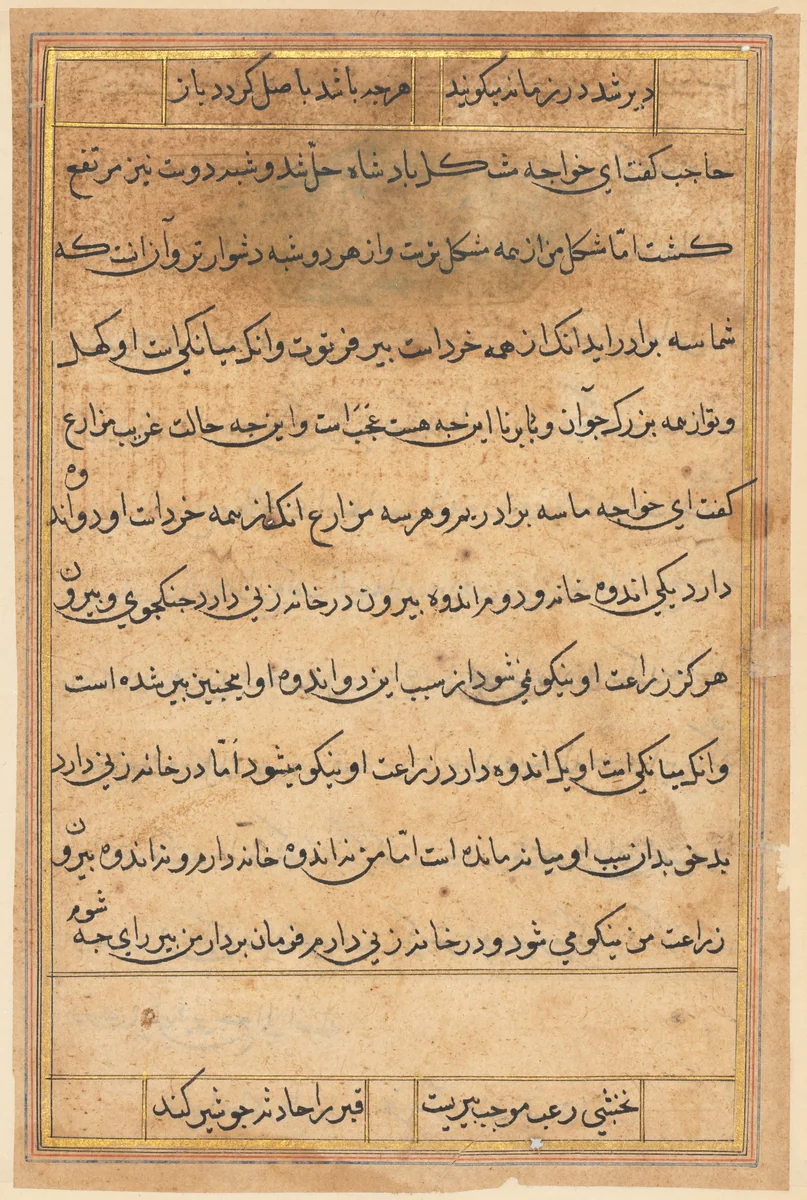 دیر شد در زمانه میکویند هرجه باشد باصل کردد باز
حاجب کفت ای خواجه مشکل بادشاه حلّ شد و شبه دوست نیز مرتفع
کشت امّا مشکل من از همه مشکل ترست و از هر دو شبه دشوارتر و آن انست که
شما سه برادراید انک از همه خرداست بیر فرتوت و انک میانکی است او کهل
و تو از همه بزرک جوآن و نابرنا این جه هست عَجَبَ است و این جه حالت غریب مزارع
کفت ای خواجه ما سه برادریم و هر سه مزارع انک از همه خرداست او دو اندوه
دارد یکی اندوه خانه و دوم اندوه بیرون در خانه زنی دارد جنکجوی و بیرون
هرکز زراعت او نیکو نمی شود از سبب این دو اندوه او اینجنین بیر شده است
و انک میانکی است او یک اندوه دارد زراعت او نیکو میشود اَمّا در خانه زنی دارد
بدخو بدان سبب او میانه مانده است امّا من نه اندوه خانه دارم و نه اندوه بیرون
زراعت من نیکو می شود و در خانه زنی دارم فرمان بردار من بیر رای جه شوم
نخشبی رعب موجب بیریست قیر را حادثه جو شیر کند